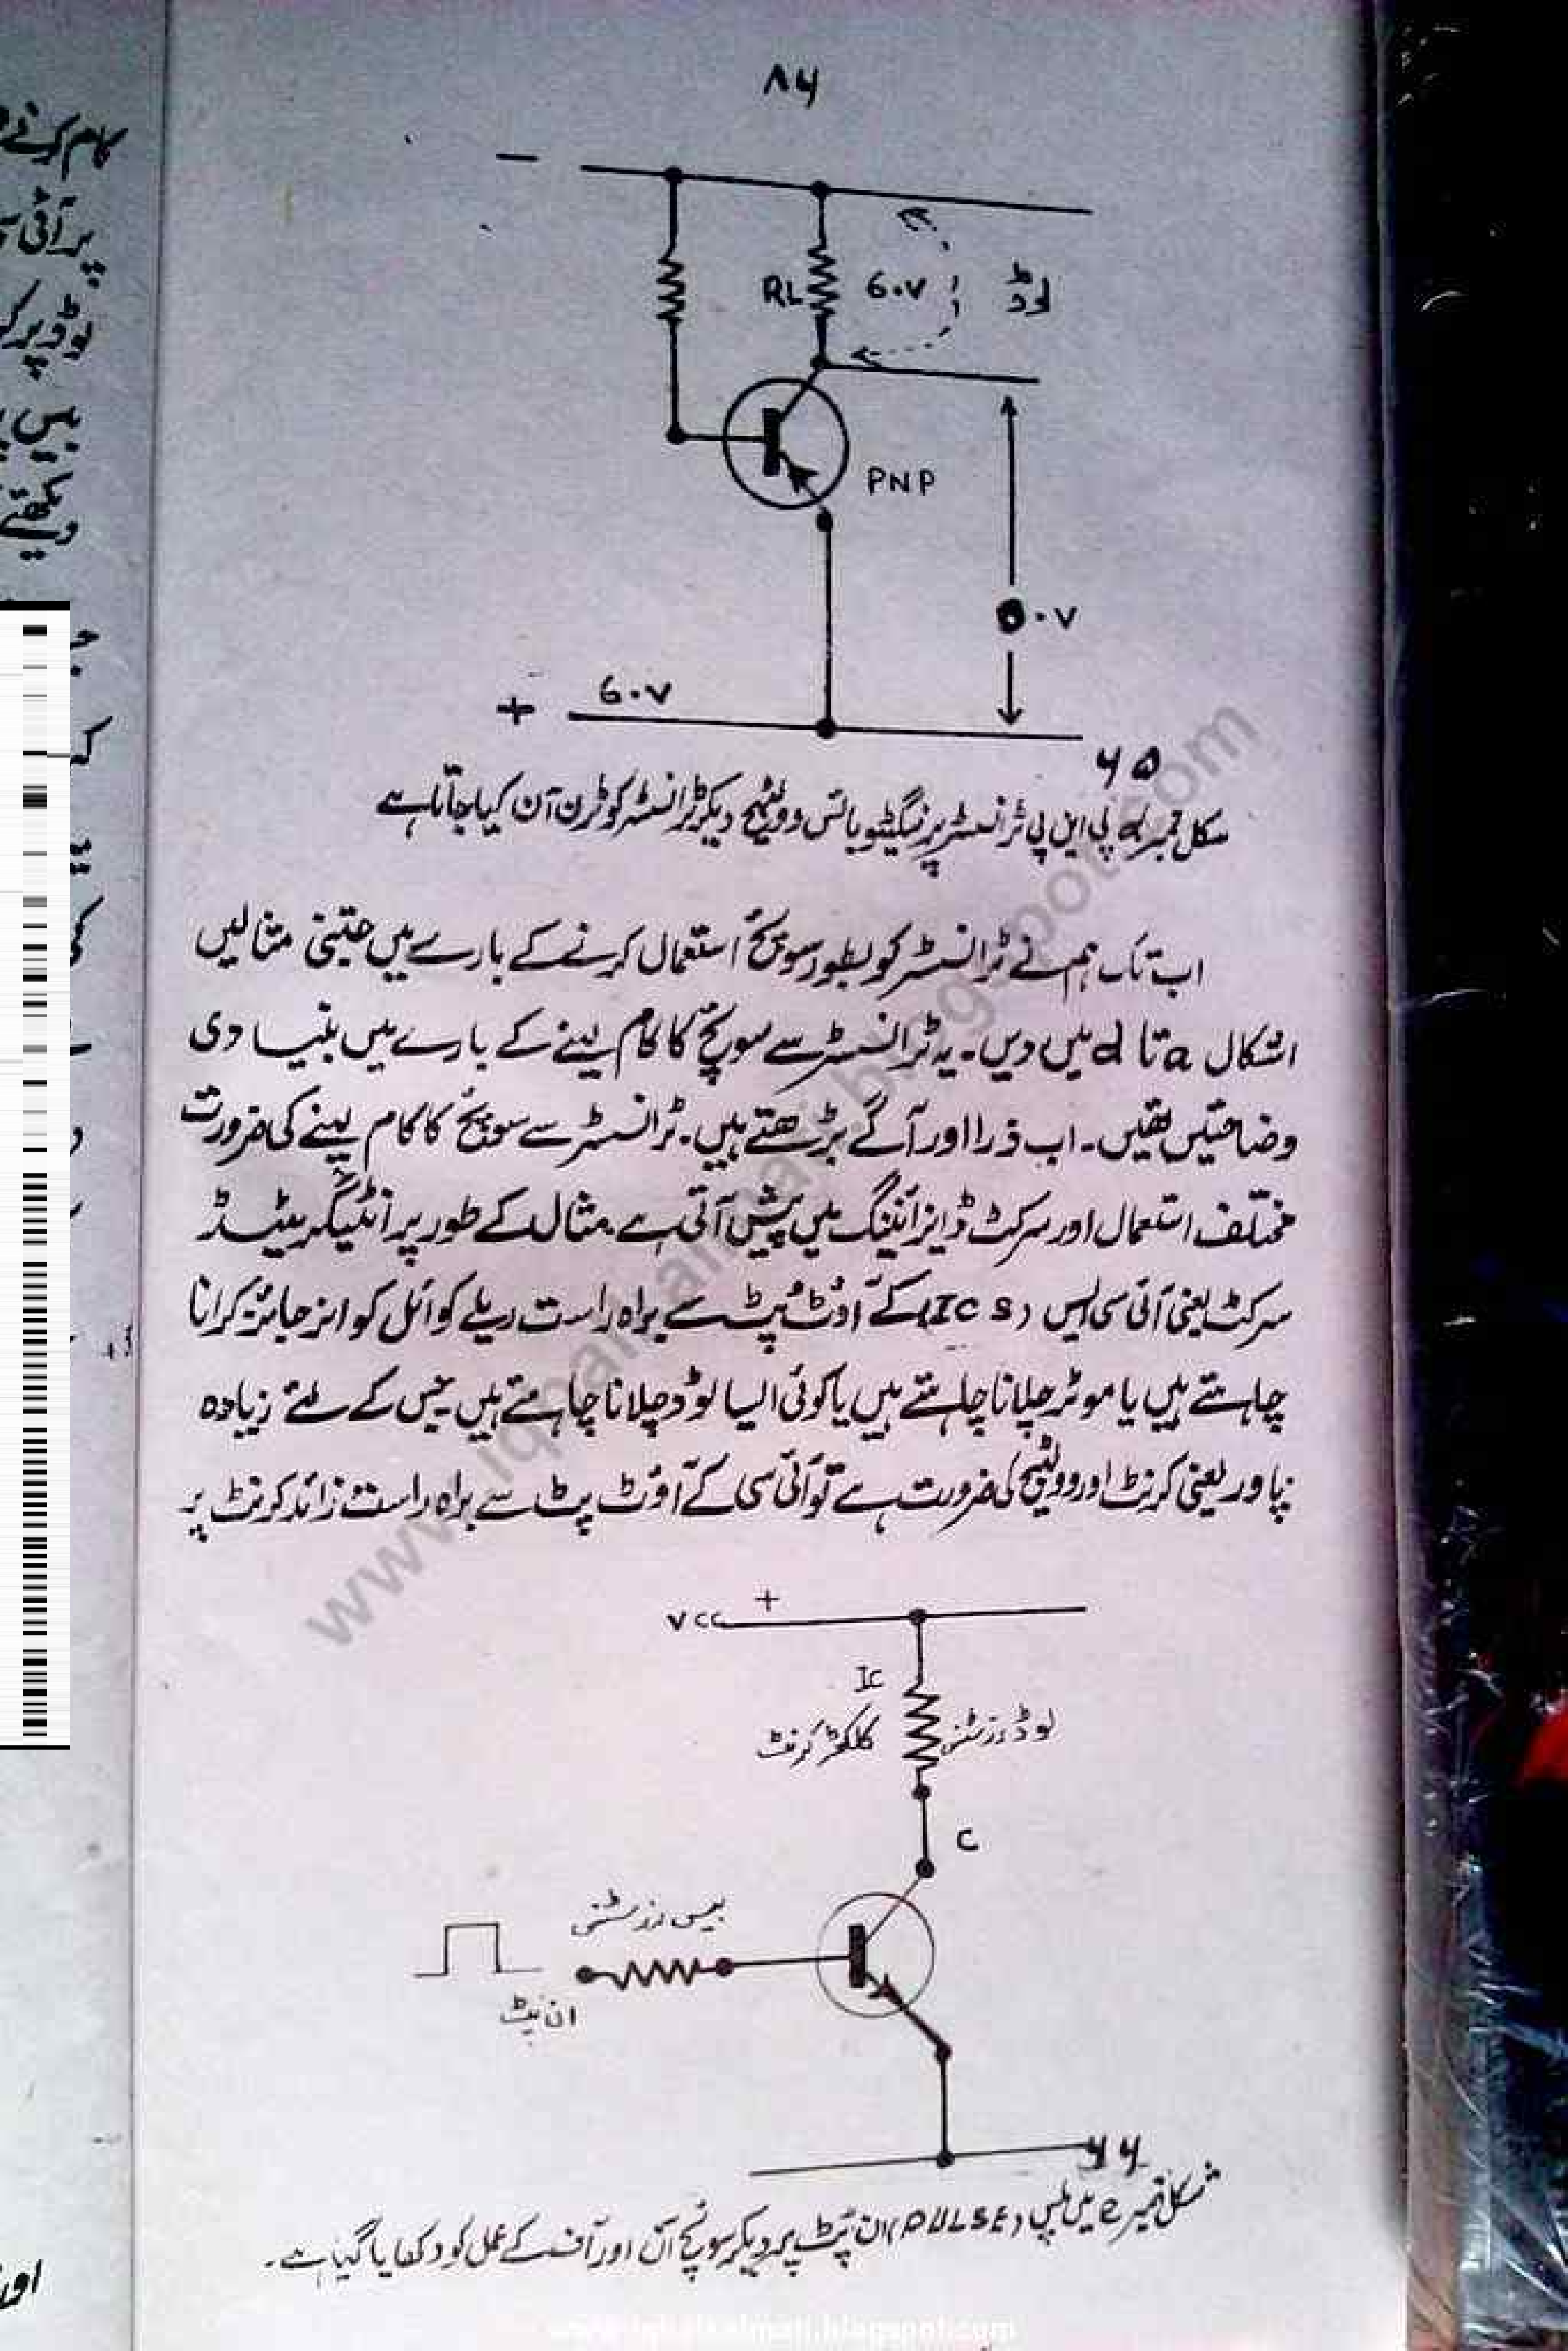 ۸۶
−
RL
6.V
لوڈ
PNP
0.V
+ 6.V
۶۵
شکل نمبر d پی این پی ٹرانسسٹر پر نیگیٹیو بائس وولٹیج دیکر ٹرانسسٹر کو ٹرن آن کیا جاتا ہے
اب تک ہم نے ٹرانسسٹر کو بطور سوئچ استعمال کرنے کے بارے میں جتنی مثالیں
اشکال a تا d میں دیں۔ یہ ٹرانسسٹر سے سوئچ کا کام لینے کے بارے میں بنیادی
وضاحتیں تھیں۔ اب ذرا اور آگے بڑھتے ہیں۔ ٹرانسسٹر سے سوئچ کا کام لینے کی ضرورت
مختلف استعمال اور سرکٹ ڈیزائننگ میں پیش آتی ہے مثال کے طور پر انٹیگریٹیڈ
سرکٹ یعنی آئی سی ایس (ICs) کے آؤٹ پُٹ سے براہ راست ریلے کوائل کو انرجائز کرانا
چاہتے ہیں یا موٹر چلانا چاہتے ہیں یا کوئی ایسا لوڈ چلانا چاہتے ہیں جس کے لئے زیادہ
پاور یعنی کرنٹ اور وولٹیج کی ضرورت ہے تو آئی سی کے آؤٹ پٹ سے براہ راست زائد کرنٹ پر
VCC +
IC
کلکٹر کرنٹ
لوڈ رزسٹنس
C
بیس رزسٹنس
ان پٹ
۶۶
شکل نمبر e میں پلس (PULSE) ان پٹ پر دیکر سوئچ آن اور آف کے عمل کو دکھایا گیا ہے۔
کام کرنے
پر آئی
لوڈ پر
بیس
دیکھئے
اور